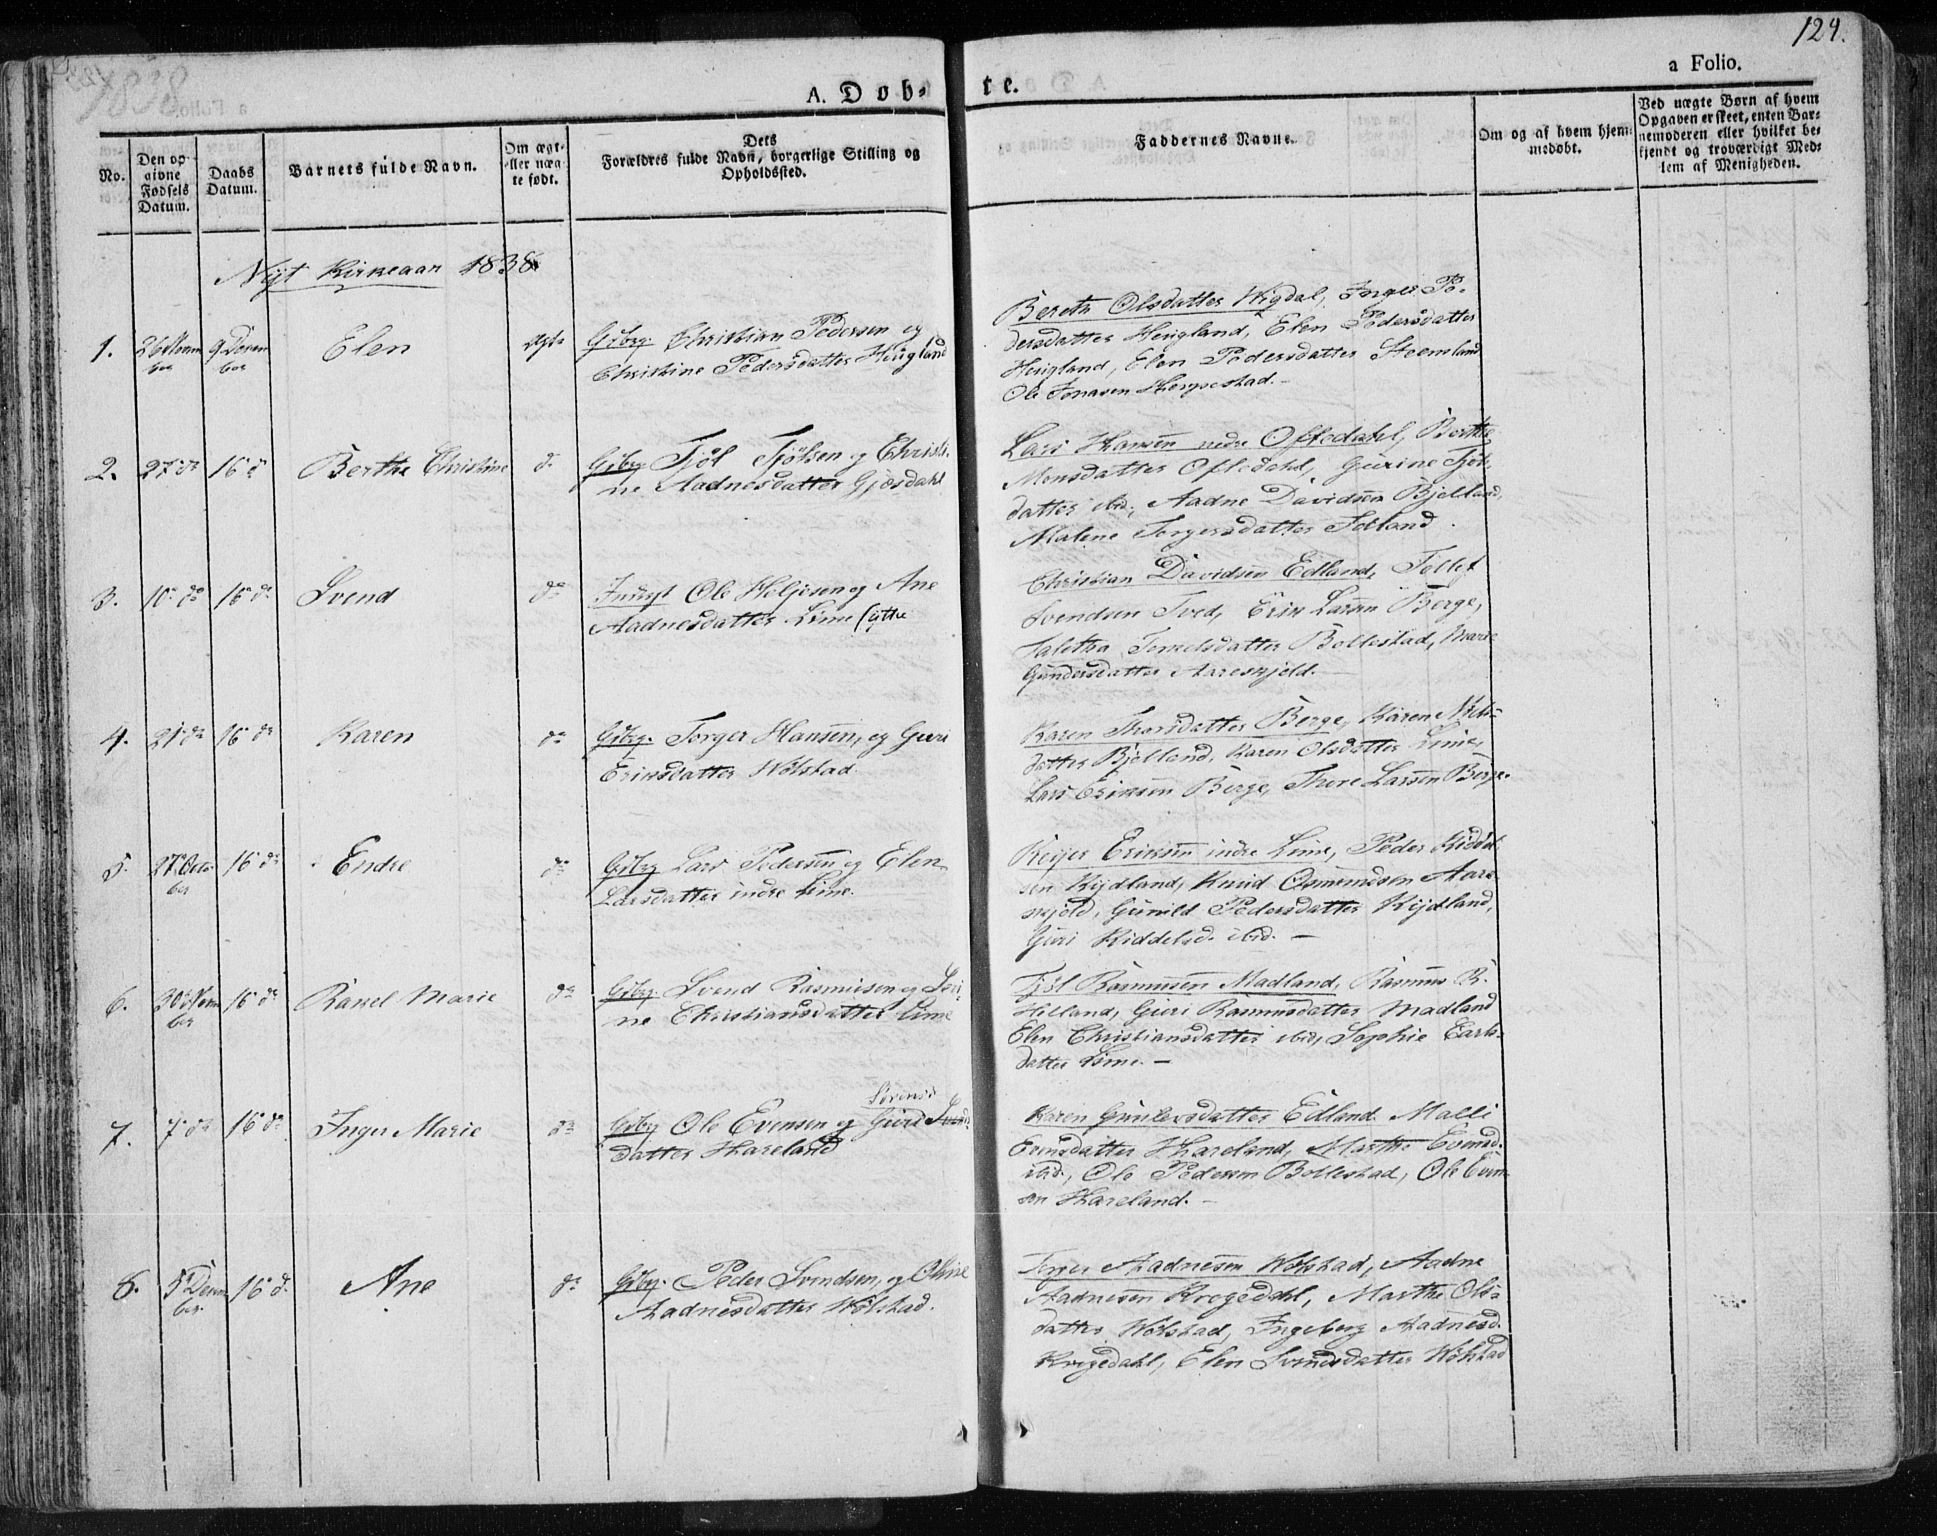 124.
1838
a Folio.
A. Døb-
te.
No.
Den op-
givne
Fødsels
Datum.
Daabs
Datum.
Barnets fulde Navn.
Om ægt-
eller uæg-
te født.
Dets
Forældres fulde Navn, borgerlige Stilling og
Opholdssted.
Faddernes Navne.
Om og af hvem hjem-
medøbt.
Ved uægte Børn af hvem
Opgaven er skeet, enten Bar-
nemoderen eller hvilket be-
kjendt og troværdigt Med-
lem af Menigheden.
Nyt Kirkeaar 1838
1.
26 Novem
ber
9 Decem
ber
Elen
Ægte
Gbrg. Christian Pedersen og
Christine Pedersdatter Heigland
Bereth Olsdatter Wigdal, Inger Pe-
dersdatter Heigland, Elen Pedersdatter
Heigland, Elen Pedersdatter Steensland
Ole Jonasen Horpestad. -
2.
27 do
16 d
Berthe Christine
d.
Gbrg Tjøl Tjølsen og Christi-
ne Aadnesdatter Gjesdahl
Lars Hansen nedre Oftedahl, Berthe
Monsdatter Oftedahl, Gurine Tjøls
datter ibid., Aadne Davidsen Bjelland,
Malene Torgersdatter Edland.
3.
10 do
16 d.
Svend
do
Indryt Ole Heljesen og Ane
Aadnesdatter Lime (ytre
Christian Davidsen Edland, Tollef
Svendsen Tved, Erik Larsen Berge,
Taletha Tomelsdatter Bollestad, Marie
Gundersdatter Aareskjold. -
4.
21 do
16 do
Karen
do
Gbrg. Torger Hansen, og Guri
Eriksdatter Wølstad.
Karen Thorsdatter Berge, Karen Nils-
datter Bjelland, Karen Olsdatter Lime,
Lars Eriksen Berge, Thore Larsen Berge.
5.
27 Octo
ber
16 do
Endre
do
Gbrg Lars Pedersen og Elen
Larsdatter indre Lime.
Reijer Eriksen indre Lime, Peder Kiddel
sen Kydland, Knud Osmundsen Aare
skjold, Gunild Pedersdatter Kydland,
Guri Kiddelsd. ibid. -
6.
30 Novem
ber
16 do
Rakel Marie
do
Gbrg. Svend Rasmusen og Seri-
ne Christiansdatter Lime
Tjøl Rasmusen Madland, Rasmus R.
Hölland, Guri Rasmusdatter Madland
Elen Christiansdatter ibid, Sophie Carls-
datter Lime. -
7.
7 do
16 do
Inger Marie
do
Sørens
Gbrg Ole Evensen og Guri Svends
datter Hareland
Karen Gunlevsdatter Edland. Malli
Evensdatter Hareland, Marthe Evensd.
ibid., Ole Pedersen Bollestad, Ole Even-
sen Hareland. -
8.
5 Decem
ber.
16 d.
Ane
do
Gbrg. Peder Svendsen, og Oline
Aadnesdatter Wølstad.
Torger Aadnesen Wølstad, Aadne
Aadnesen Krogedahl, Marthe Ols-
datter Wølstad, Ingeborg Aadnesd.
Krogedahl, Elen Svendsdatter Wølstad